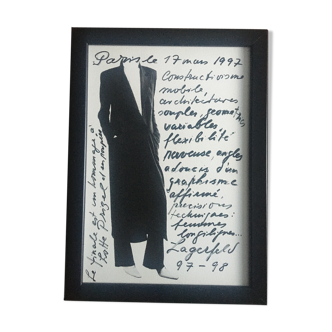 Paris, le 17 mars 1997
Constructivisme
mobile,
architectures
souples, géométries
variables,
flexibilité
nerveuse, angles
adoucis d'un
graphisme
affirmé.
précisions
techniques:
femmes
longilignes...
Lagerfeld
97-98
Le finale est un hommage à
Lotte Pritzel et ses poupées